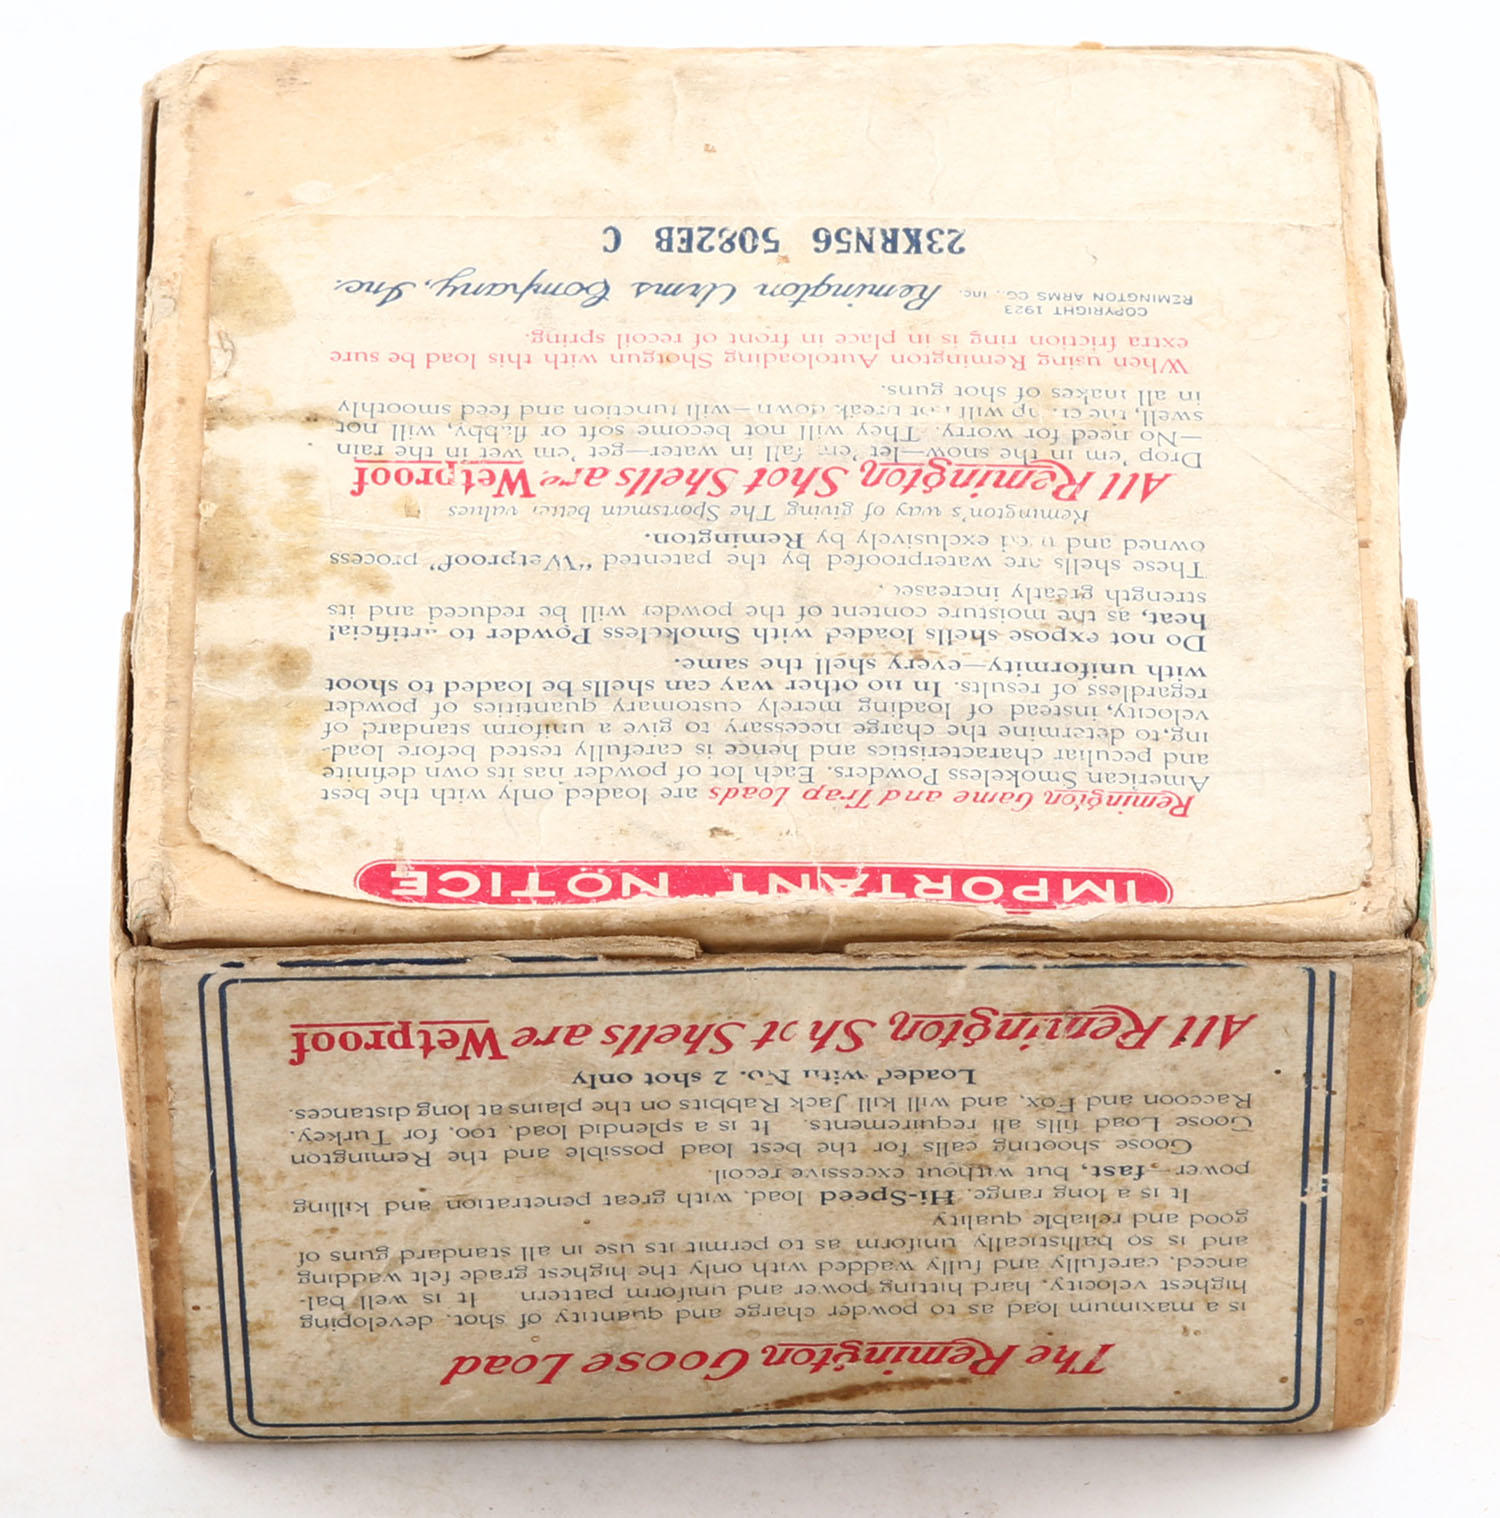 The Remington Goose Load
is a maximum load as to powder charge and quantity of shot, developing
highest velocity, hard hitting power and uniform pattern It is well bal-
anced, carefully and fully wadded with only the highest grade felt wadding
and is so ballistically uniform as to permit its use in all standard guns of
good and reliable quality
It is a long range, Hi-Speed load, with great penetration and killing
power—fast, but without excessive recoil.
Goose shooting calls for the best load possible and the Remington
Goose Load fills all requirements. It is a splendid load, too, for Turkey,
Raccoon and Fox, and will kill Jack Rabbits on the plains at long distances.
Loaded with No. 2 shot only
All Remington Shot Shells are Wetproof
IMPORTANT NOTICE
Remington Game and Trap Loads are loaded only with the best
American Smokeless Powders. Each lot of powder has its own definite
and peculiar characteristics and hence is carefully tested before load-
ing, to determine the charge necessary to give a uniform standard of
velocity, instead of loading merely customary quantities of powder
regardless of results. In no other way can shells be loaded to shoot
with uniformity—every shell the same.
Do not expose shells loaded with Smokeless Powder to artificial
heat, as the moisture content of the powder will be reduced and its
strength greatly increased.
These shells are waterproofed by the patented "Wetproof" process
owned and used exclusively by Remington.
Remington's way of giving The Sportsman better values
All Remington Shot Shells are Wetproof
Drop 'em in the snow—let 'em fall in water—get 'em wet in the rain
—No need for worry. They will not become soft or flabby, will not
swell, the crimp will not break down—will function and feed smoothly
in all makes of shot guns.
When using Remington Autoloading Shotgun with this load be sure
extra friction ring is in place in front of recoil spring.
COPYRIGHT 1923
REMINGTON ARMS CO., Inc.
Remington Arms Company, Inc.
23KRN56 5082EB C